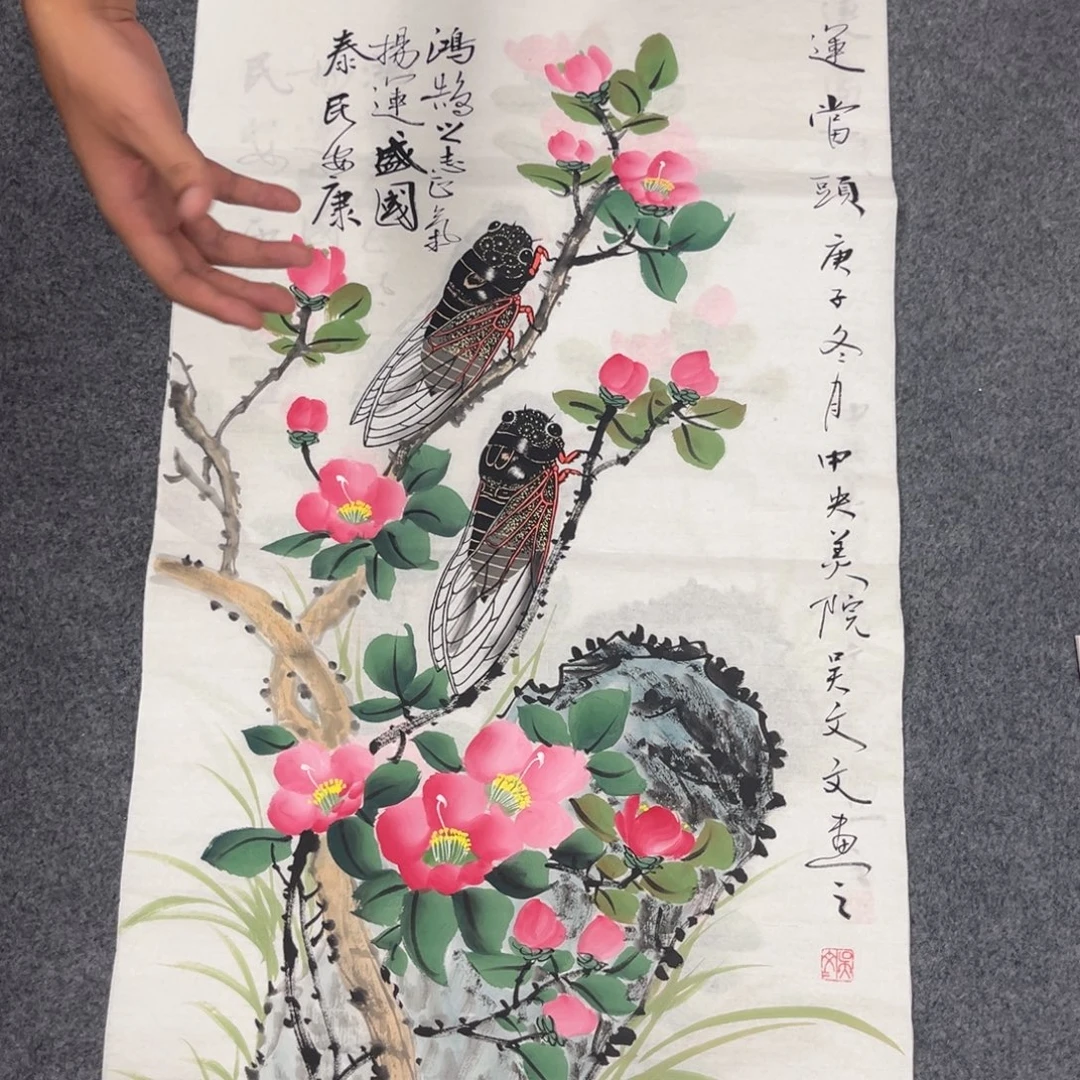 運當頭庚子冬月中央美院吴文文畫之
鴻鵠之志正氣
揚運盛國
泰民安康
吴文